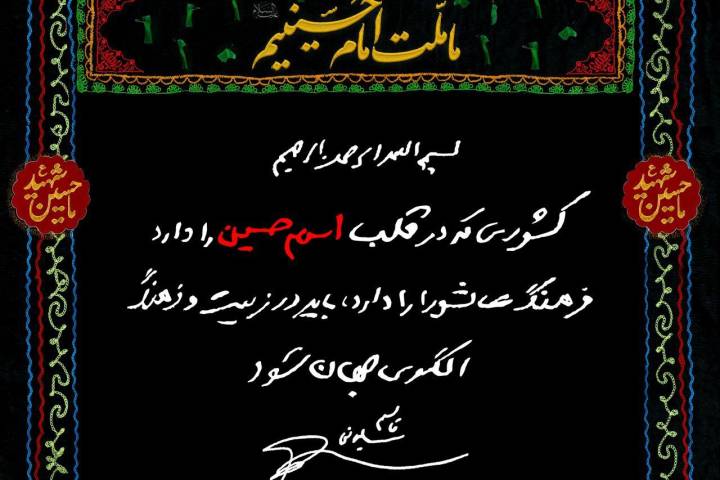 ما ملّت امام حسینیم
بسم الله الرحمن الرحیم
کشوری که در قلب اسم حسین را دارد
فرهنگ عاشورا را دارد، باید در تربیت و فرهنگ
الگوی جهان شود
قاسم سلیمانی
ما حسین شهید
ما حسین شهید